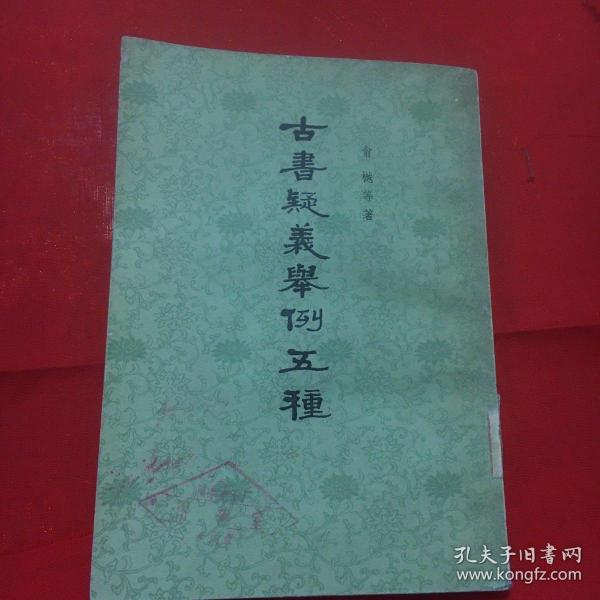 古書疑義舉例五種
俞樾等著
孔夫子旧書网
www.kongfz.com